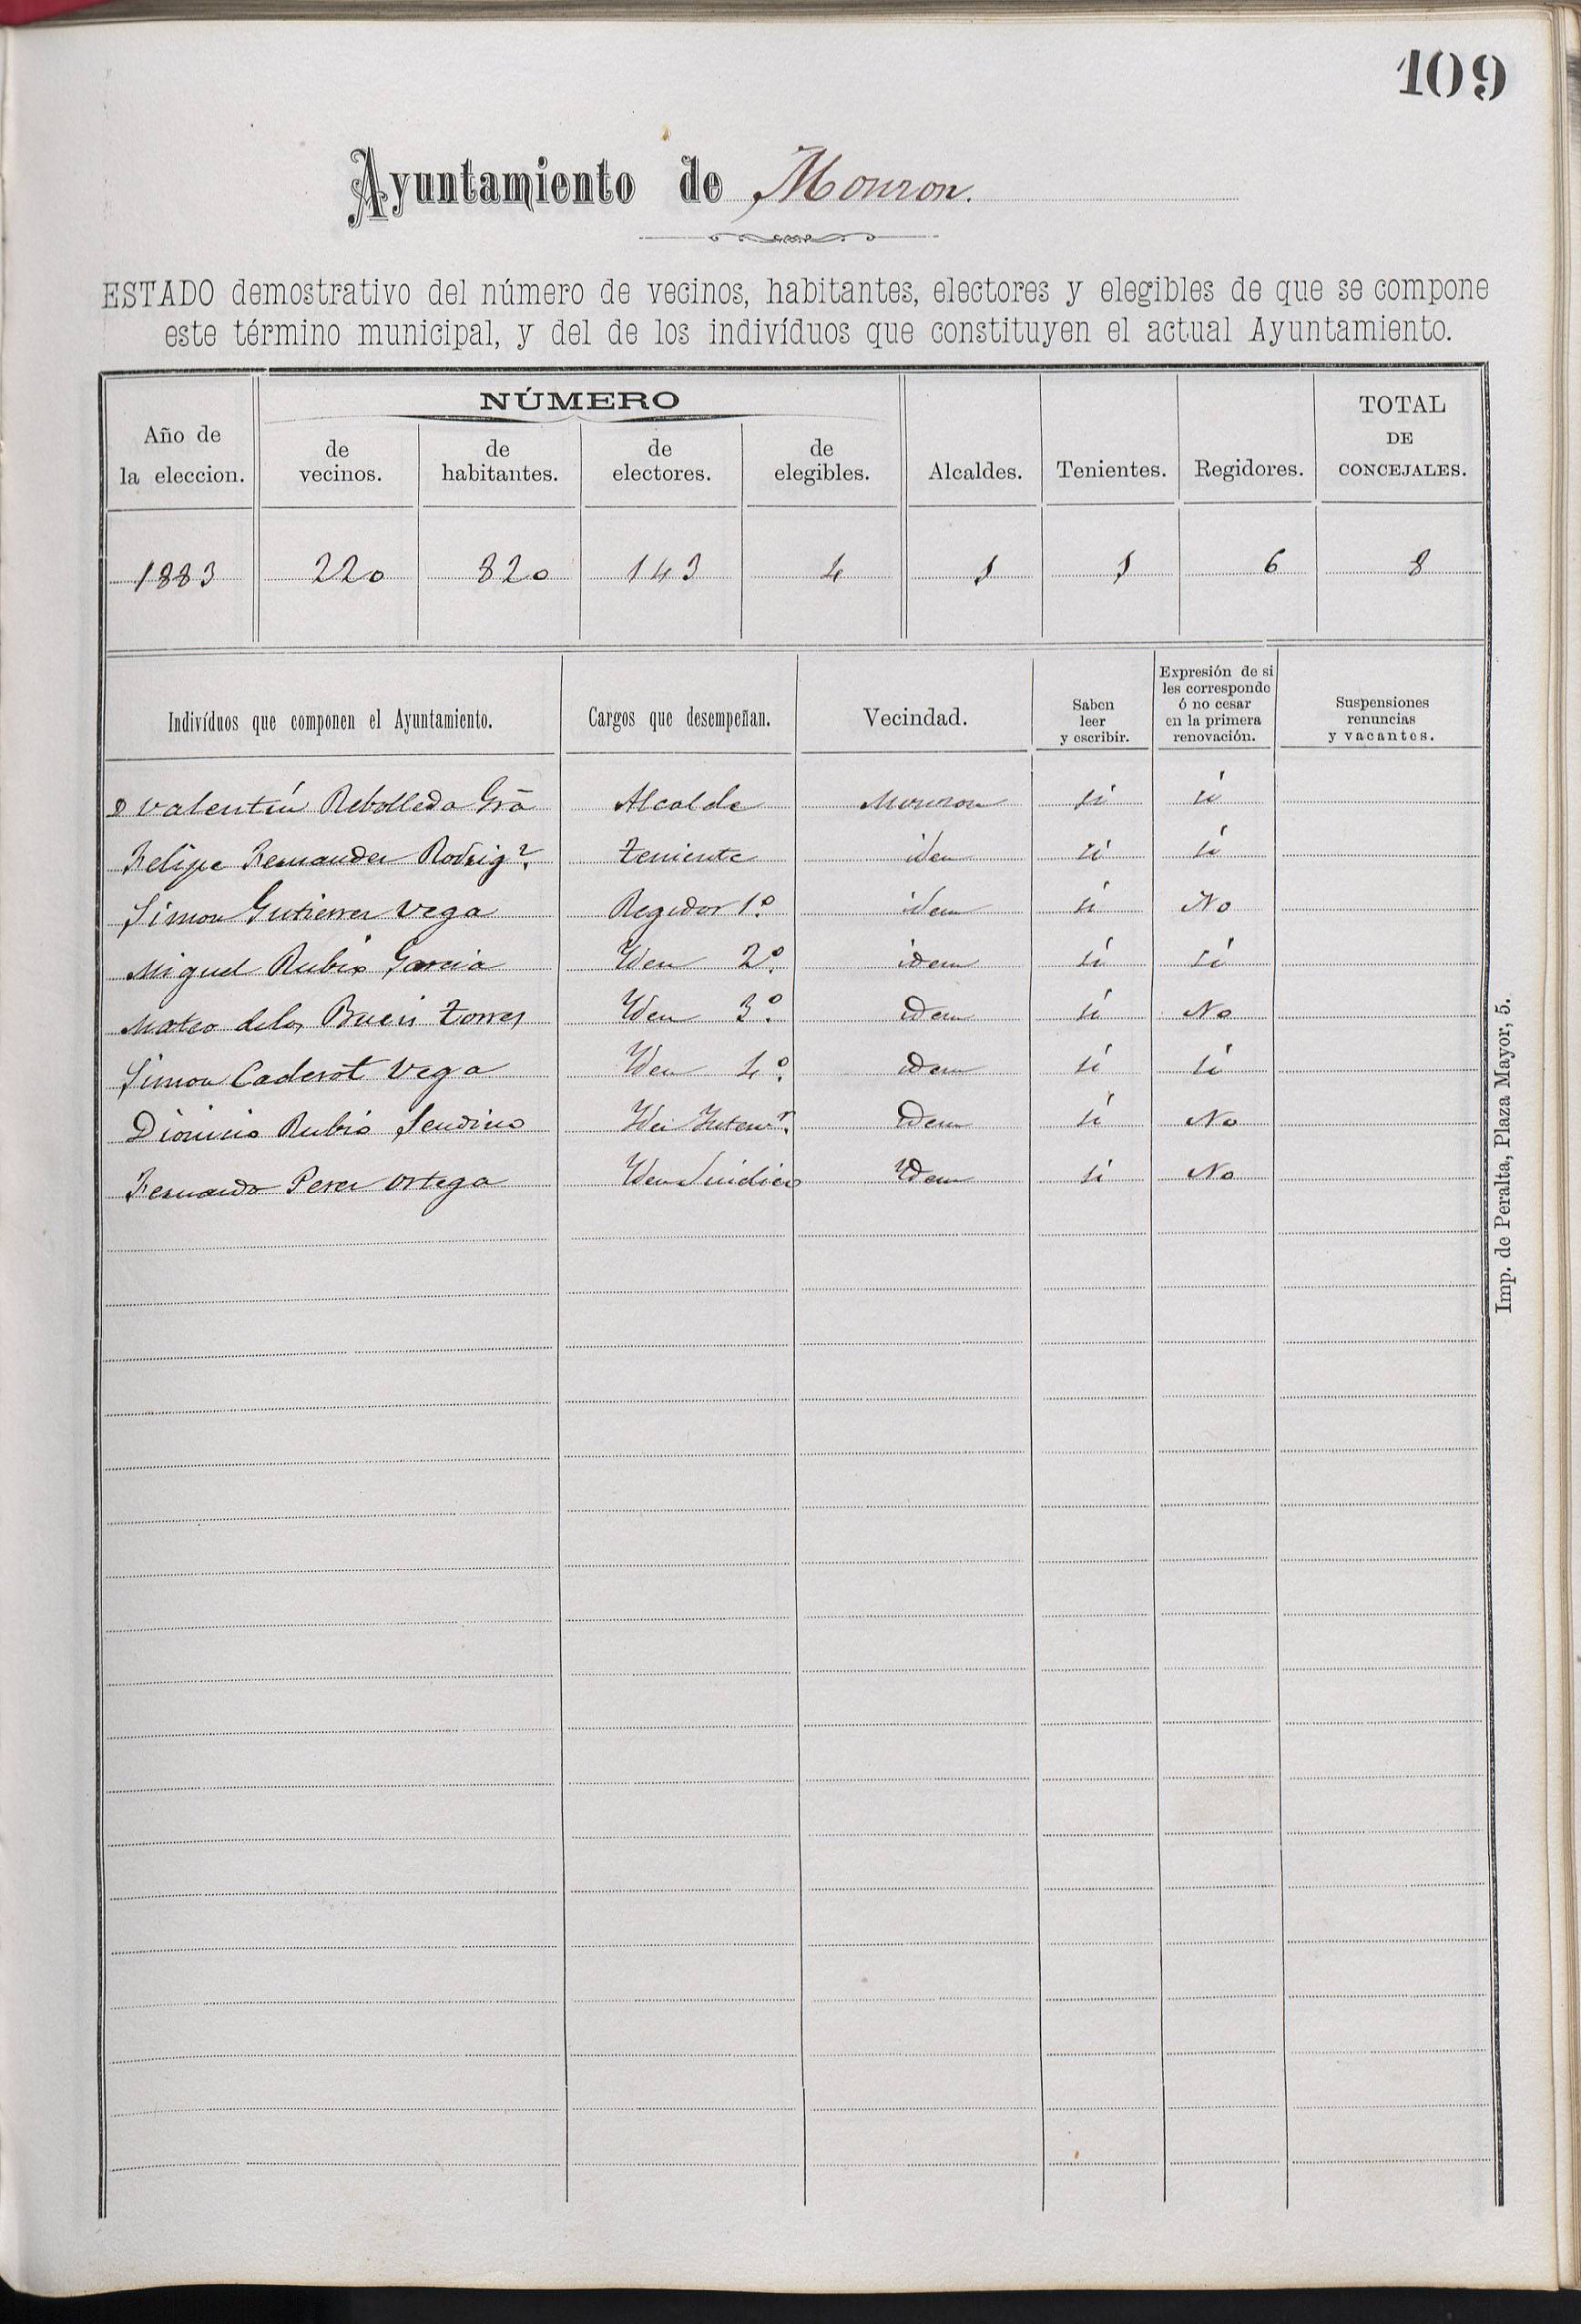 109
Ayuntamiento de Monzon.
ESTADO demostrativo del número de vecinos, habitantes, electores y elegibles de que se compone
este término municipal, y del de los indivíduos que constituyen el actual Ayuntamiento.
NÚMERO
Año de la eleccion. de vecinos. de habitantes. de electores. de elegibles. Alcaldes. Tenientes. Regidores. TOTAL DE CONCEJALES.
1883 220 820 143 4 1 1 6 8
Indivíduos que componen el Ayuntamiento. Cargos que desempeñan. Vecindad. Saben leer y escribir. Expresión de si les corresponde ó no cesar en la primera renovación. Suspensiones renuncias y vacantes.
D Valentín Rebolleda Grã Alcalde Monzon sí sí
Felipe Fernandez Rodrigz. Teniente idem sí sí
Simon Gutierrez Vega Regidor 1º idem sí No
Miguel Rubio Garcia Idem 2º idem sí sí
Mateo delos Bueis Torres Idem 3º idem sí No
Simon Caderot Vega Idem 4º idem sí sí
Dionisio Rubio Sendino Idem idem sí No
Fernando Perez Ortega Idem Sindico Idem sí No
Imp. de Peralta, Plaza Mayor, 5.